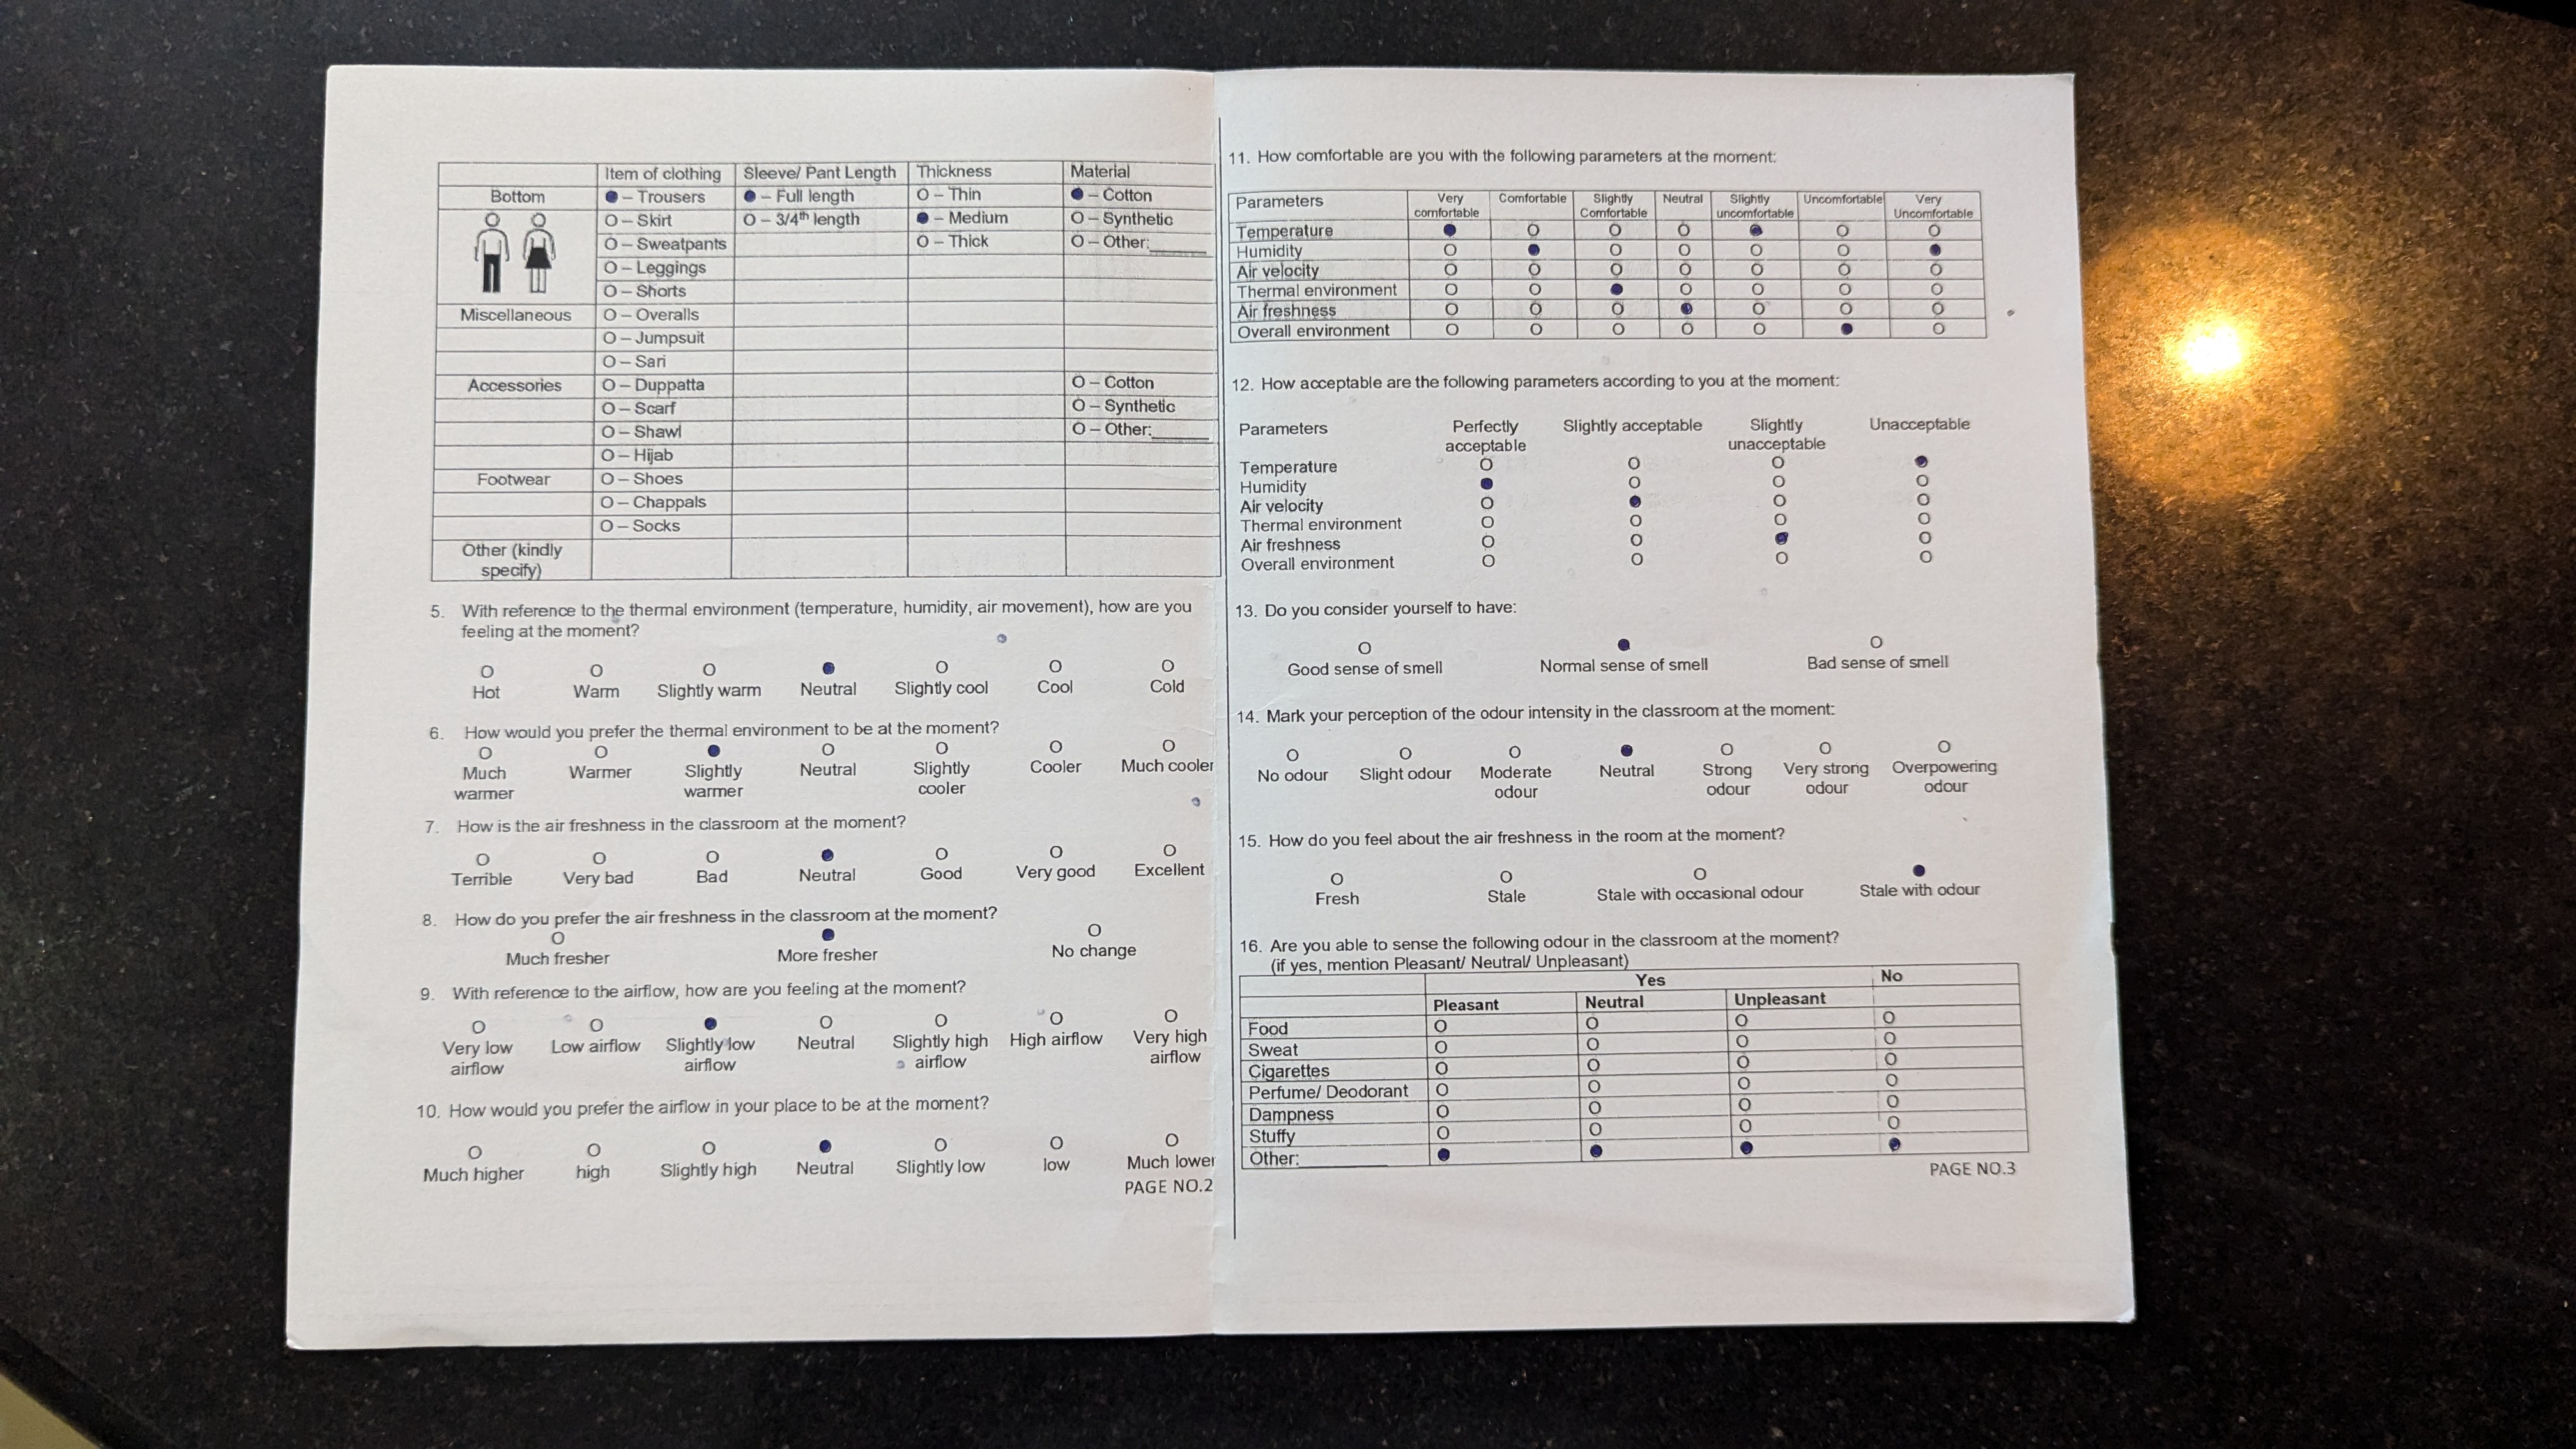 Item of clothing Sleeve/ Pant Length Thickness Material
Bottom ● – Trousers ● – Full length O – Thin ● – Cotton
O – Skirt O – 3/4th length ● – Medium O – Synthetic
O – Sweatpants O – Thick O – Other:______
O – Leggings
O – Shorts
Miscellaneous O – Overalls
O – Jumpsuit
O – Sari
Accessories O – Duppatta O – Cotton
O – Scarf O – Synthetic
O – Shawl O – Other:______
O – Hijab
Footwear O – Shoes
O – Chappals
O – Socks
Other (kindly
specify)
5. With reference to the thermal environment (temperature, humidity, air movement), how are you
feeling at the moment?
O O O ● O O O
Hot Warm Slightly warm Neutral Slightly cool Cool Cold
6. How would you prefer the thermal environment to be at the moment?
O O ● O O O O
Much Warmer Slightly Neutral Slightly Cooler Much cooler
warmer warmer cooler
7. How is the air freshness in the classroom at the moment?
O O O ● O O O
Terrible Very bad Bad Neutral Good Very good Excellent
8. How do you prefer the air freshness in the classroom at the moment?
O ● O
Much fresher More fresher No change
9. With reference to the airflow, how are you feeling at the moment?
O O ● O O O O
Very low Low airflow Slightly low Neutral Slightly high High airflow Very high
airflow airflow airflow airflow
10. How would you prefer the airflow in your place to be at the moment?
O O O ● O O O
Much higher high Slightly high Neutral Slightly low low Much lower
PAGE NO.2
11. How comfortable are you with the following parameters at the moment:
Parameters Very Comfortable Slightly Neutral Slightly Uncomfortable Very
comfortable Comfortable uncomfortable Uncomfortable
Temperature ● O O O ● O O
Humidity O ● O O O O ●
Air velocity O O O O O O O
Thermal environment O O ● O O O O
Air freshness O O O ● O O O
Overall environment O O O O O ● O
12. How acceptable are the following parameters according to you at the moment:
Parameters Perfectly Slightly acceptable Slightly Unacceptable
acceptable unacceptable
Temperature O O O ●
Humidity ● O O O
Air velocity O ● O O
Thermal environment O O O O
Air freshness O O ● O
Overall environment O O O O
13. Do you consider yourself to have:
O ● O
Good sense of smell Normal sense of smell Bad sense of smell
14. Mark your perception of the odour intensity in the classroom at the moment:
O O O ● O O O
No odour Slight odour Moderate Neutral Strong Very strong Overpowering
odour odour odour odour
15. How do you feel about the air freshness in the room at the moment?
O O O ●
Fresh Stale Stale with occasional odour Stale with odour
16. Are you able to sense the following odour in the classroom at the moment?
(if yes, mention Pleasant/ Neutral/ Unpleasant)
Yes No
Pleasant Neutral Unpleasant
Food O O O O
Sweat O O O O
Cigarettes O O O O
Perfume/ Deodorant O O O O
Dampness O O O O
Stuffy O O O O
Other:__________ ● ● ● ●
PAGE NO.3